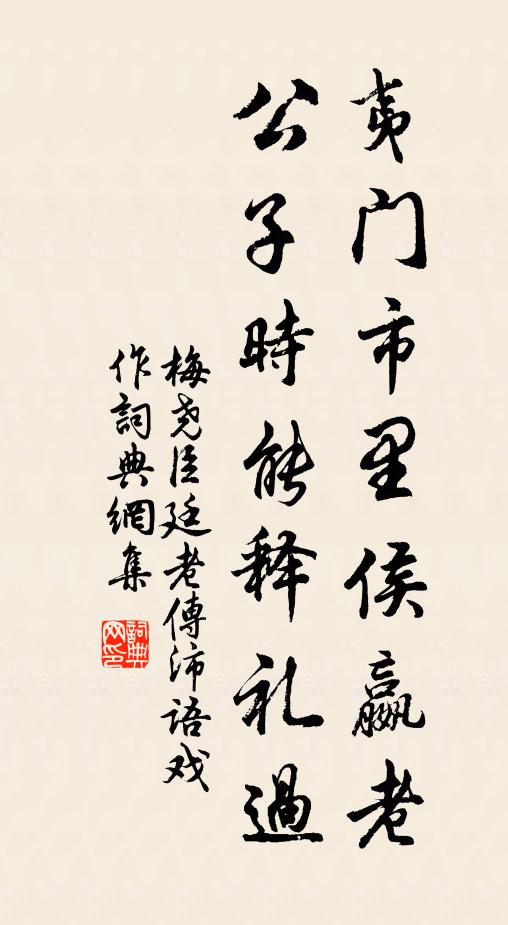 夷门市里侯嬴老
公子時能释礼過
梅尧臣廷老傳沛語戏
作詞典網集
詞典网印